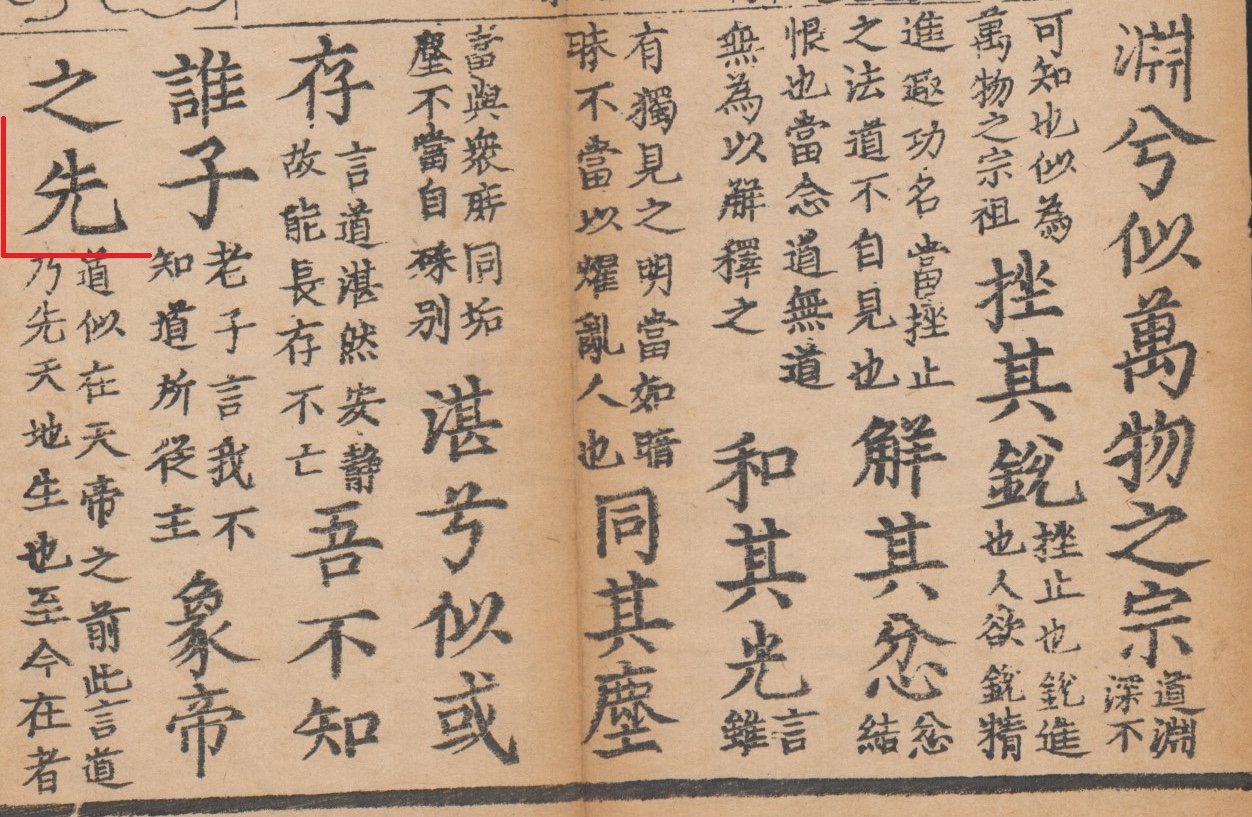 淵兮似萬物之宗道淵深不
可知也似為萬物之宗祖挫其銳挫止也銳進也人欲銳精
進趣功名當挫止之法道不自見也解其忿忿結
恨也當念道無道無為以解釋之和其光言雖
有獨見之明當如暗昧不當以耀亂人也同其塵
當與衆庶同垢塵不當自殊別湛兮似或
存言道湛然安靜故能長存不亡吾不知
誰子老子言我不知道所從主象帝
之先道似在天帝之前此言道乃先天地生也至今在者